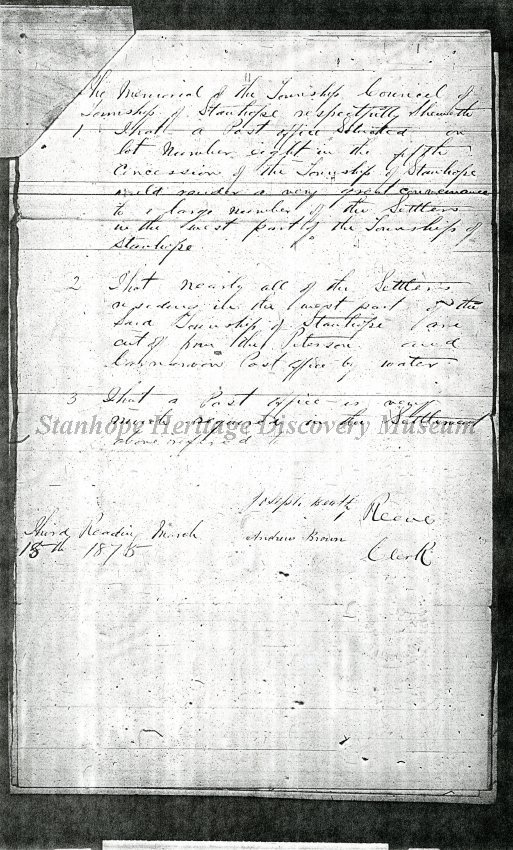 The Memorial of the Township Council of
Township of Stanhope respectfully Sheweth
1 That a Post office Situated on
lot Number eight in the fifth
Concession of the Township of Stanhope
would render a very great convenience
to a large number of the Settlers
in the west part of the Township of
Stanhope
2 That nearly all of the Settlers
in the west part of the
Said Township of Stanhope are
cut of from the Peterson and
Post office by water
3 That a Post office is very
much in the Settlement
above refered to
Stanhope Heritage Discovery Museum
Joseph Reeve
Third Reading March Andrew Brown
18th 1875 Clerk